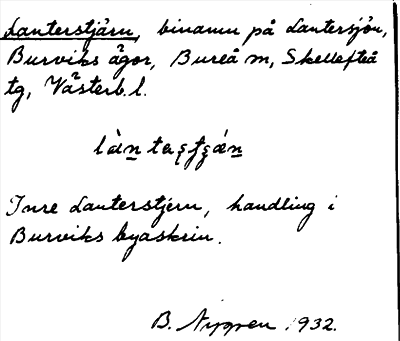 Lanterstjärn, binamn på Lantersjön,
Burviks ägor, Bureå sn, Skellefteå
tg, Västerb. l.
Inre Lanterstjern, handling i
Burviks byaskrin.
B. Nygren 1932.